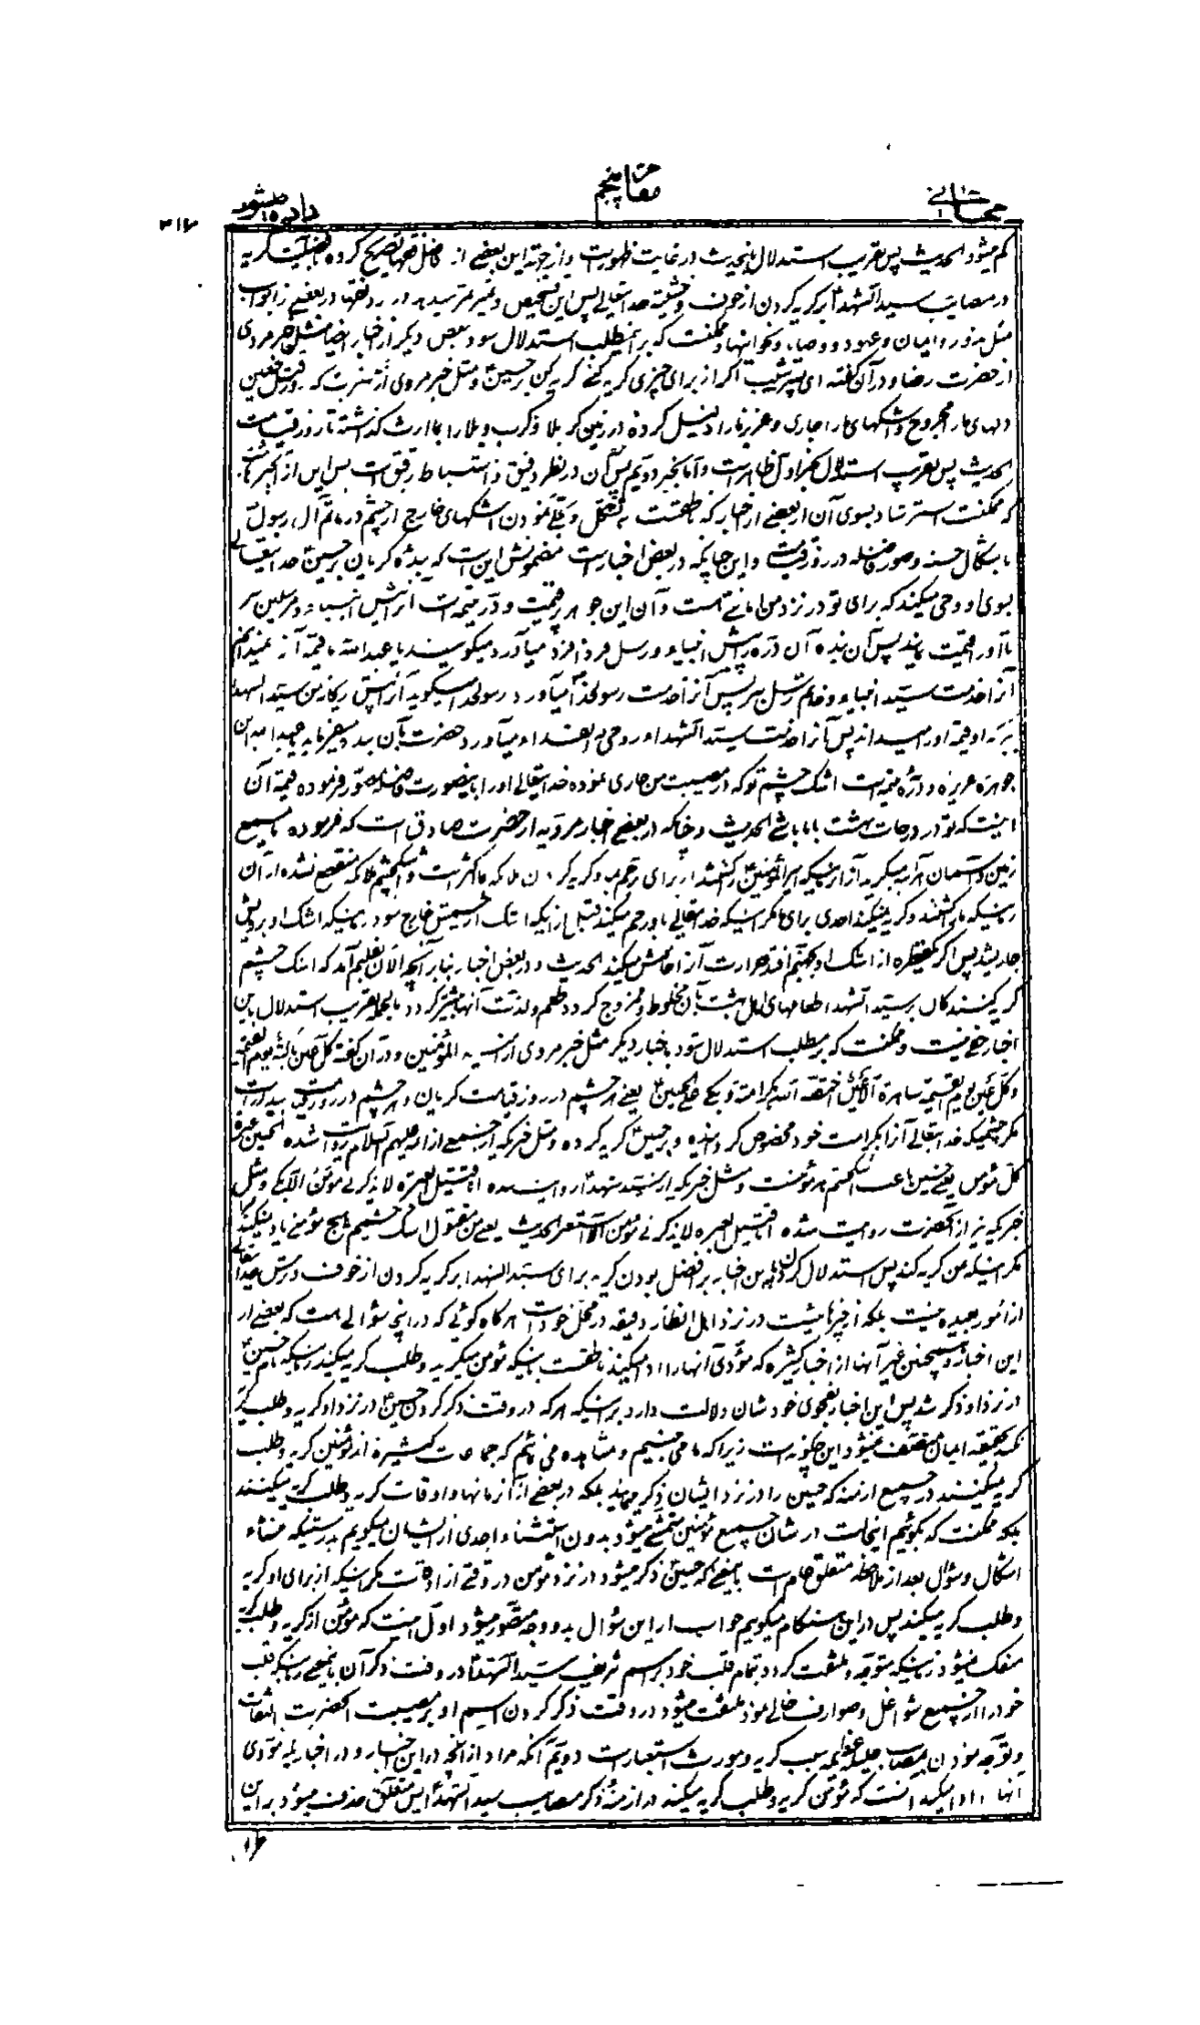 مقام پنجم
کم میشود الحدیث پس تقریب استدلال باینحدیث در غایت ظهور است و از جهة این بعضی از فقها تصریح کرده گریه
در مصایب سید الشهدا بر گریه کردن از خوف و خشیة خدایتعالی پس این تخصیص و در بعضی از ابواب
مثل نذور و ایمان و عهود و وصایا و نحو اینها و ممکنست که بر اینمطلب استدلال شود ببعض دیگر از اخبار ایضا مثل خبر مروی
از حضرت رضا و در آن گفته ای پسر شبیب اگر از برای چیزی گریه کنی گریه کن بر حسین و مثل خبر مروی از
دلهای ما را مجروح و اشکهای ما را جاری و عزیز ما را ذلیل کرده در زمین کربلا و کرب و بلا را بما ارث گذاشته تا روز قیامت
الحدیث پس تقریب استدلال بخبر اول ظاهر است و اما بخبر دویم پس آن در نظر دقیق و استنباط رقیق است پس این از
که ممکنست استرشاد بسوی آن از بعضی از اخبار که ناطقست به تشکل و نمودن اشکهای خارج از چشم در ماتم آل رسول
باشکال حسنه و صور فاضله در روز قیامت و این چنانکه در بعض اخبار است مضمونش این است که بنده گریان بر حسین خدایتعالی
بسوی او وحی میکند که برای تو در نزد من امانتی است و آن این جوهر پر قیمت و در یتیمه است آنرا پیش انبیاء و مرسلین ببر
تا آنرا قیمت نمایند پس آن بنده آن دره را پیش انبیاء و رسل فردا فردا میآورد میگویند یا عبدالله ما قیمة آنرا نمیدانیم
آنرا خدمت سید انبیاء و خاتم رسل ببر پس آنرا خدمت رسولخدا میآورد رسولخدا میگوید آنرا پیش ریحانه من سید الشهدا
ببر که او قیمة او را میداند پس آنرا خدمت سید الشهدا روحی له الفداء میآورد حضرت بآن بنده میفرماید یا عبدالله این
جوهره عزیزه و درة یتیمه است اشک چشم تو که در مصیبت من جاری نموده خدایتعالی او را باینصورت فاضله مصور فرموده قیمة آن
اینست که تو در درجات بهشت با ما باشی الحدیث و چنانکه در بعضی اخبار مرویه از حضرت صادق است که فرموده
زمین و آسمان هر آینه میگرید از زمانیکه امیر المؤمنین را کشتند از برای ترحم بما و گریه کردن ملائکه ما اکثر است و اشکچشم ملائکه منقطع نشده از آن
زمانیکه ما را کشتند و گریه نمیکند احدی برای ما مگر اینکه خدایتعالی باو رحم میکند قبل از اینکه اشک از چشمش خارج شود زمانیکه اشک او بر رویش
جاریشد پس اگر یکقطره از اشک او بجهنم افتد حرارت آنرا خاموش میکند الحدیث و در بعض اخبار بنابر آنچه الآن بنظرم آمد که اشک چشم
گریه کنندگان بر سید الشهدا بطعامهای اهل بهشت بآن مخلوط و ممزوج گردد و طعم و لذت آنها بیشتر گردد بالجمله تقریب استدلال باین
اخبار خفی نیست و ممکنست که بر مطلب استدلال شود باخبار دیگر مثل خبر مروی از امیر المؤمنین و در آن گفته کل عین باکیة یوم القیمة
و کل عین یوم القیمة ساهرة الا عین اختصه الله بکرامته و بکی علی الحسین یعنی هر چشم در روز قیامت گریان و هر چشم در روز قیامت بیدار است
مگر چشمیکه خدایتعالی آنرا بکرامت خود مخصوص گردانیده و بر حسین گریه کرده و مثل خبریکه از جمیعی از ائمه علیهم السلام روایت شده الحسین عبرة
کل مؤمن یعنی حسین باعث اشکچشم هر مؤمنست و مثل خبریکه از سید شهدا روایت شده انا قتیل العبرة لا یذکرنی مؤمن الا بکی و مثل
خبر که نیز از آنحضرت روایت شده انا قتیل العبرة لا یذکرنی مؤمن الا استعبر الحدیث یعنی من مقتول اشک چشمیم هیچ مؤمنی یاد نمیکند مرا
مگر اینکه من گریه کند پس استدلال کردن باین اخبار بر افضل بودن گریه برای سید الشهدا بر گریه کردن از خوف و ترس خدایتعالی
از امور بعیده نیست بلکه از چیزهائیست در نزد اهل انظار دقیقه در محل خود است هر گاه گوئی که در اینجا سؤالی هست که بعضی از
این اخبار و همچنین غیر آنها از اخبار کثیره که مؤدی آنها را ادا میکنند ناطقست باینکه مؤمن میگرید و طلب گریه میکند زمانیکه نام حسین
در نزد او ذکر شد پس این اخبار بفحوای خودشان دلالت دارد بر اینکه هر که در وقت ذکر کردن حسین در نزد او گریه و طلب گریه
نکند بحقیقة ایمان متصف نمیشود این چگونه است زیرا که ما می بینیم و مشاهده می نمائیم که جماعت کثیره از مؤمنین گریه و طلب
گریه نمیکنند در جمیع ازمنه که حسین را در نزد ایشان ذکر نمایند بلکه در بعضی از آن زمانها و اوقات گریه و طلب گریه میکنند
بلکه ممکنست که بگوئیم اینحالت در شان جمیع مؤمنین متمشی میشود بدون استثناء واحدی از ایشان میگویم بدرستیکه منشاء
اشکال و سؤال بعد از ملاحظه متعلق عام است باینمعنی که حسین ذکر نمیشود در نزد مؤمن در وقتی از اوقات مگر اینکه از برای او گریه
و طلب گریه میکند پس در این هنگام میگوییم جواب از این سؤال بدو وجه متصور میشود اول اینست که مؤمن از گریه و طلب گریه
منفک نمیشود زمانیکه متوجه و ملتفت گردد بتمام قلب خود بر اسم شریف سید الشهدا در وقت ذکر آن باینمعنی زمانیکه قلب
خود را از جمیع شواغل و صوارف خالی نمود ملتفت میشود در وقت ذکر کردن اسم او بر مصیبت آنحضرت التفات
و توجه نمودن بمصایب جلیله عظیمه سبب گریه و مورث استعبار است دویم آنکه مراد از آنچه در این اخبار و در اخباریکه مؤدی
آنها را ادا میکند اینست که مؤمن گریه و طلب گریه میکند در ازمنه ذکر مصایب سید الشهدا پس متعلق حذف میشود بر این